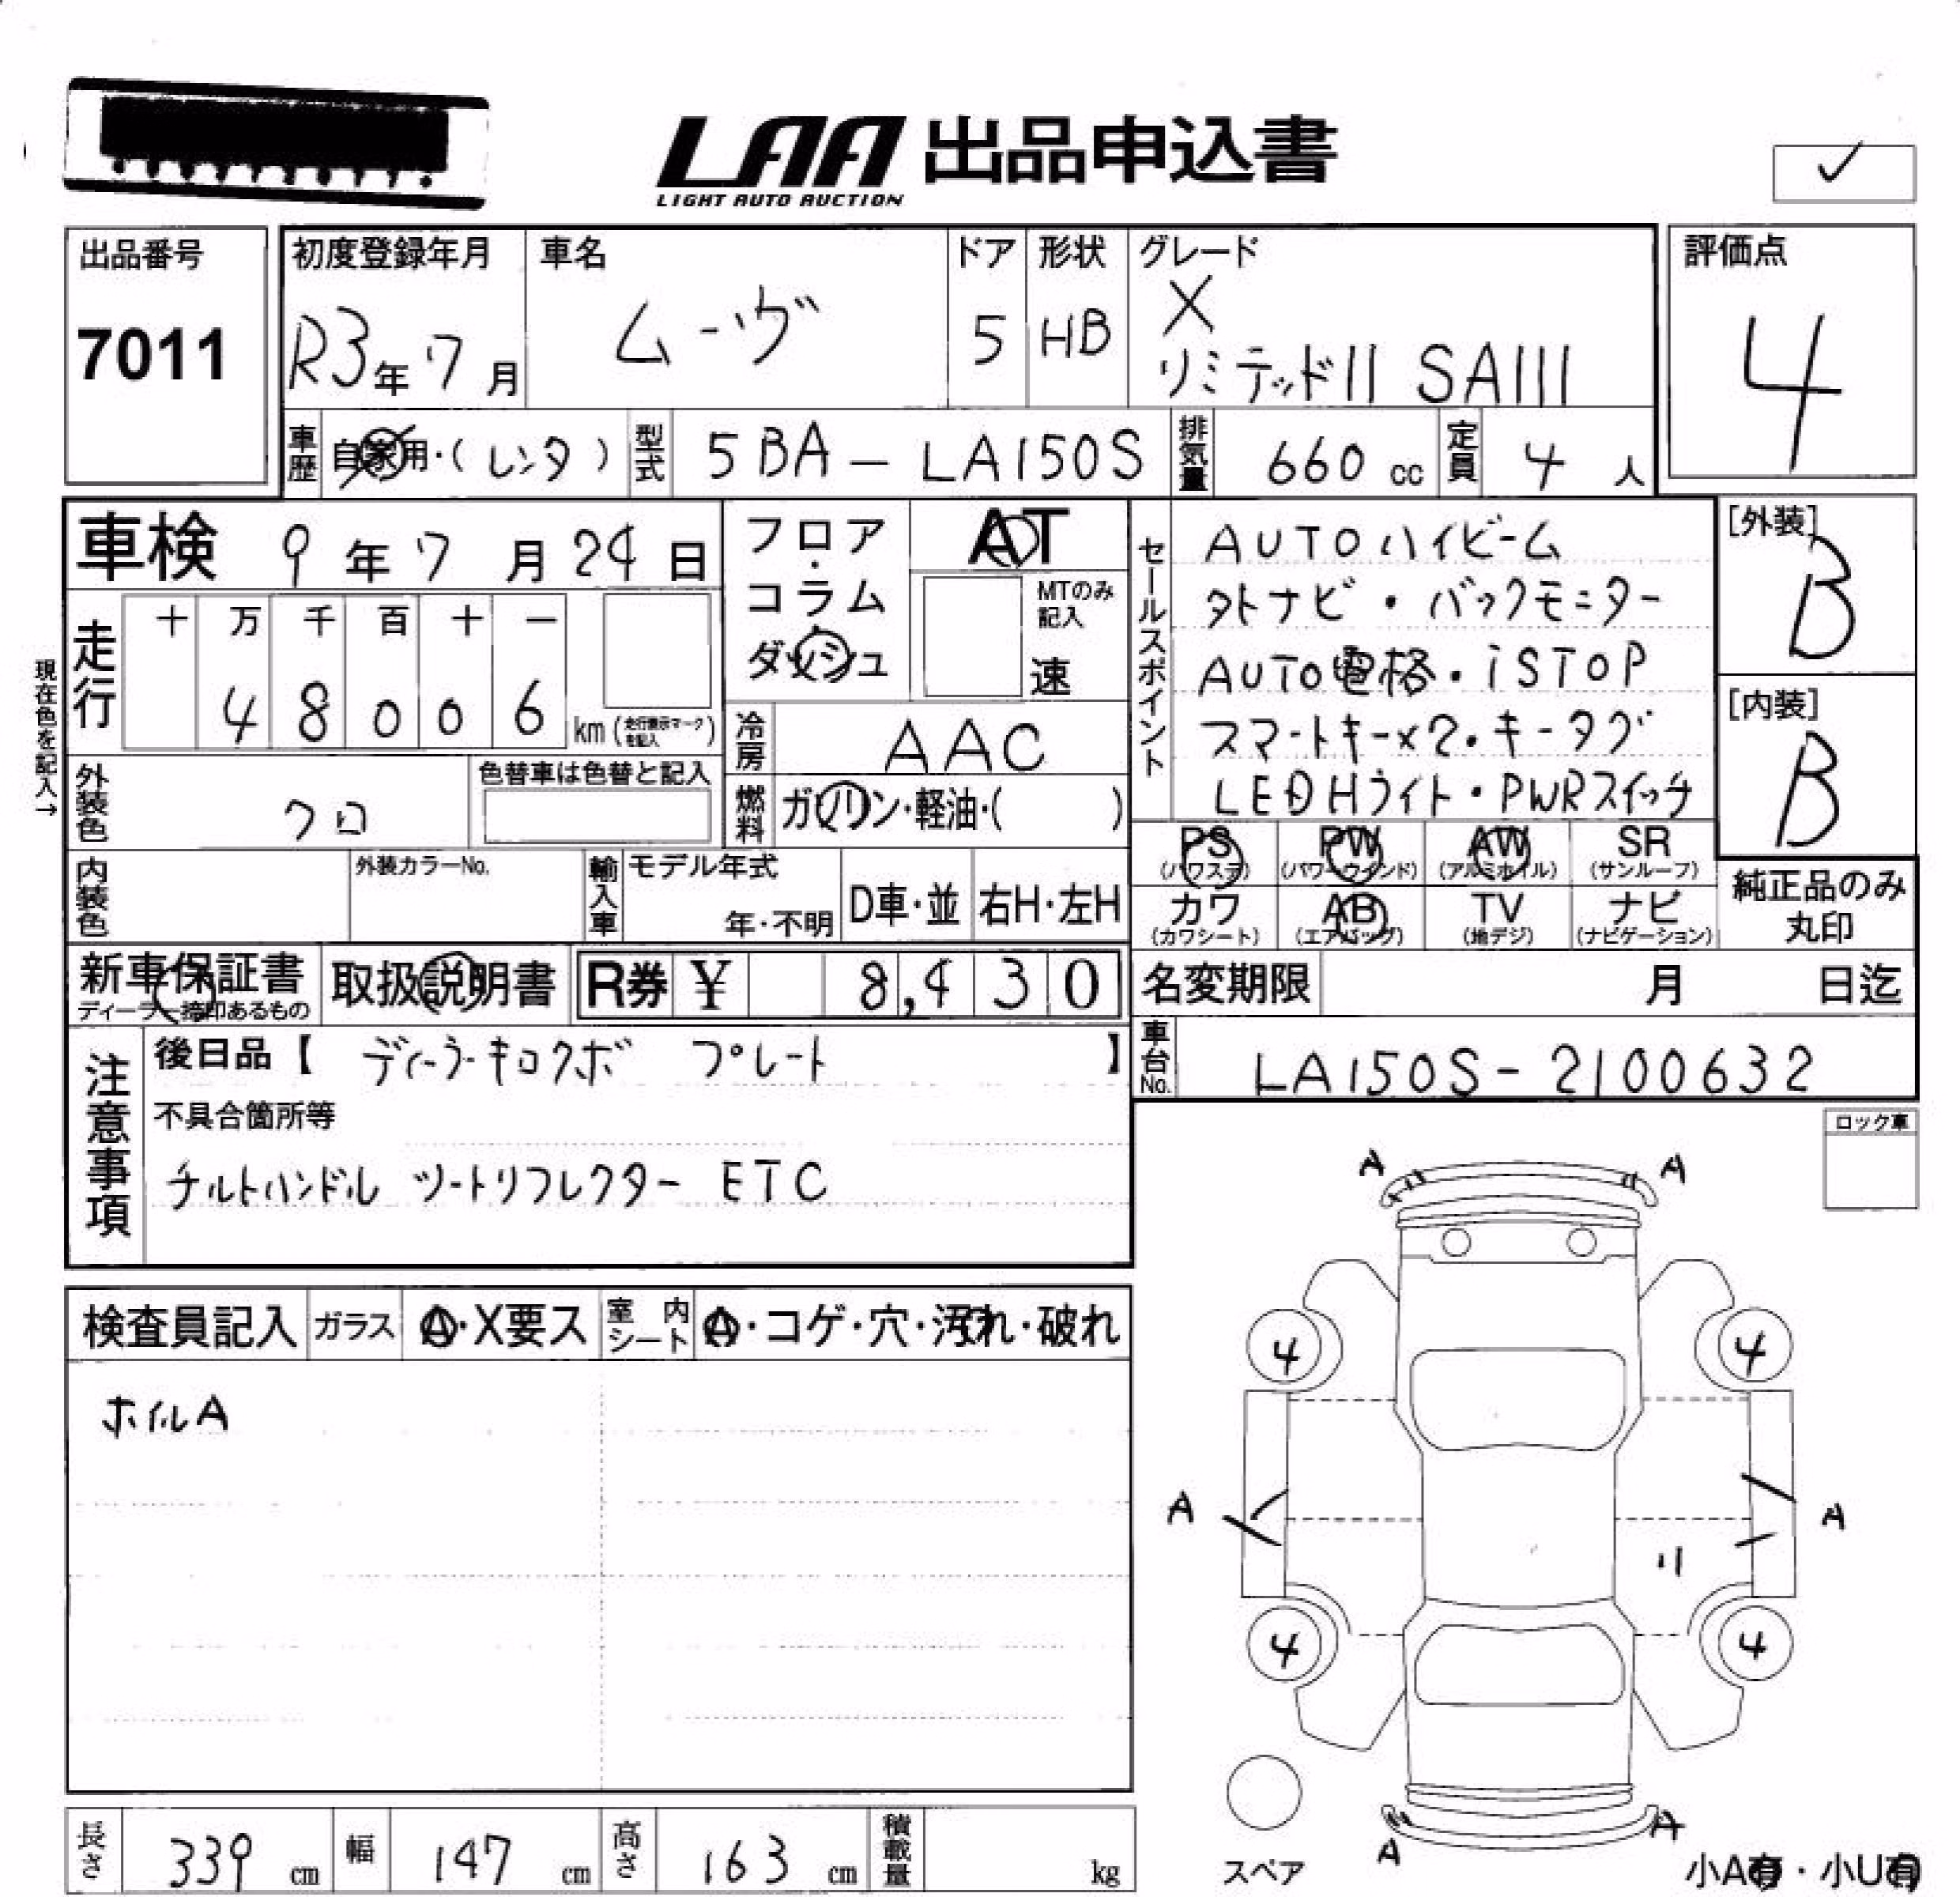 LAA 出品申込書
LIGHT AUTO AUCTION
✓
出品番号
7011
初度登録年月
R3年7月
車名
ムーヴ
ドア
5
形状
HB
グレード
X
リミテッドII SAIII
評価点
4
車歴
自家用・(レンタ)
型式
5BA — LA150S
排気量
660 cc
定員
4 人
車検 9年7月24日
フロア・コラム・ダッシュ
AT
MTのみ記入
速
セールスポイント
AUTOハイビーム
外ナビ・バックモニター
AUTO電格・iSTOP
スマートキー×2・キータグ
LEDHライト・PWRスイッチ
[外装]
B
[内装]
B
現在色を記入→
走行
十 万 千 百 十 一
4 8 0 0 6 km (走行表示マークを記入)
冷房
AAC
外装色
クロ
色替車は色替と記入
燃料
ガソリン・軽油・( )
PS (パワステ)
PW (パワーウインド)
AW (アルミホイル)
SR (サンルーフ)
カワ (カワシート)
AB (エアバッグ)
TV (地デジ)
ナビ (ナビゲーション)
純正品のみ
丸印
内装色
外装カラーNo.
輸入車
モデル年式
年・不明
D車・並
右H・左H
新車保証書
ディーラー捺印あるもの
取扱説明書
R券 ¥ 8,430
名変期限 月 日迄
車台No.
LA150S-2100632
注意事項
後日品【 ディーラーキロクボ プレート 】
不具合箇所等
チルトハンドル シートリフレクター ETC
ロック車
検査員記入
ガラス
A・X要ス
室内シート
A・コゲ・穴・汚れ・破れ
ホイルA
A A
4 4
A A
4 4
A A
スペア
小A有・小U有
長さ 339 cm
幅 147 cm
高さ 163 cm
積載量 kg